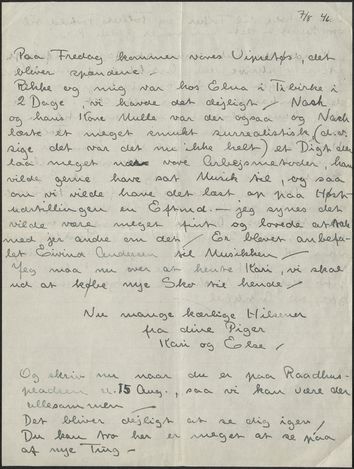 7/8 46.
Paa Fredag kommer vores Vipretøs, det
bliver spændende. –
Rikke og mig var hos Elna i Tibirke i
2 Dage, vi havde det dejligt / Nash
og hans Kone Mulle var der ogsaa og Nash
læste et meget smukt surrealistisk (d.v.
sige det var det nu ikke helt) et Digt der
laa meget vore Arbejdsmetoder, han
vilde gerne have sat Musik til, og saa
om vi vilde have det læst op paa Høst-
udstillingen en Eftmd. – jeg synes det
vilde være meget fint og lovede at tale
med jer andre om det / Er blevet anbefa-
let Eivind Andersen til Musikken /
Jeg maa nu over at hente Kari, vi skal
ud at købe nye Sko til hende /
Nu mange kærlige Hilsener
fra dine Piger
Kari og Else /
Og skriv nu naar du er paa Raadhus-
pladsen 15 Aug., saa vi kan være der
allesammen /
Det bliver dejligt at se dig igen /
Du kan tro her er meget at se paa
af nye Ting –